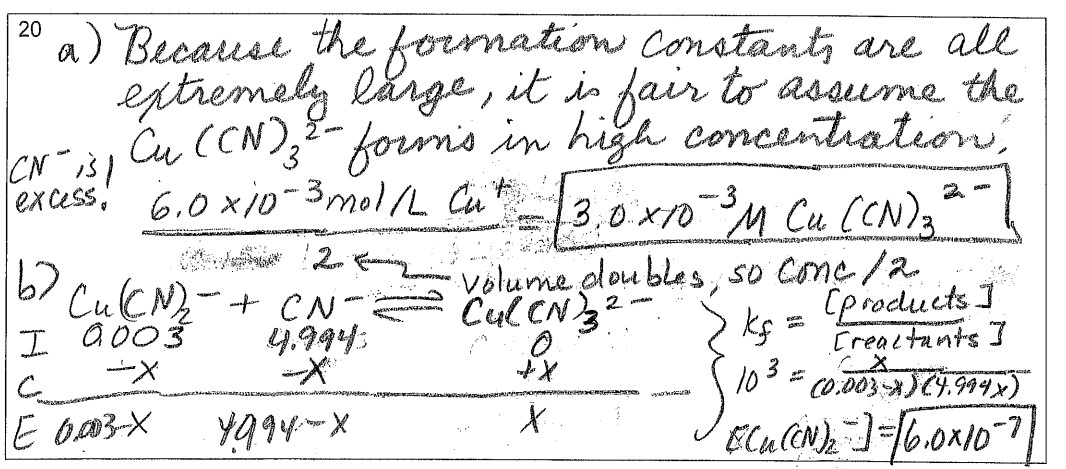 20
a) Because the formation constants are all
extremely large, it is fair to assume the
Cu(CN)₃²⁻ forms in high concentration.
CN⁻ is
excess!
6.0 x 10⁻³ mol/L Cu⁺ = 3.0 x 10⁻³ M Cu(CN)₃²⁻
2 ← volume doubles, so conc/2
b) Cu(CN)₂⁻ + CN⁻ ⇌ Cu(CN)₃²⁻
I 0.003 4.994 0
C -x -x +x
E 0.003-x 4.994-x x
Kf = [products]
[reactants]
10³ = x
(0.003-x)(4.994x)
[Cu(CN)₂⁻] = 6.0x10⁻⁷